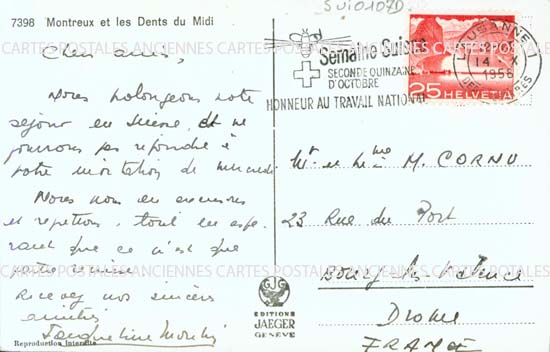 7398 Montreux et les Dents du Midi
SUI0107D
Chers amis,
Nous prolongeons notre
séjour en Suisse, et ne
pourrons pas répondre à
votre invitation de mercredi
Nous nous en excusons
et regrettons, tout en espé-
rant que ce n'est que
partie remise
Recevez nos sincères
amitiés
Jacqueline
Reproduction interdite
GJG
EDITIONS
JAEGER
GENÈVE
Semaine Suisse
SECONDE QUINZAINE
D'OCTOBRE
HONNEUR AU TRAVAIL NATIONAL
LAUSANNE 1
14 X
1956
25 HELVETIA
Mr et Mme M. CORNU
23 Rue du Port
Bourg-les-Valence
Drome
FRANCE
CARTES POSTALES ANCIENNES CARTES POSTALES ANCIENNES CARTES POSTALES ANCIENNES